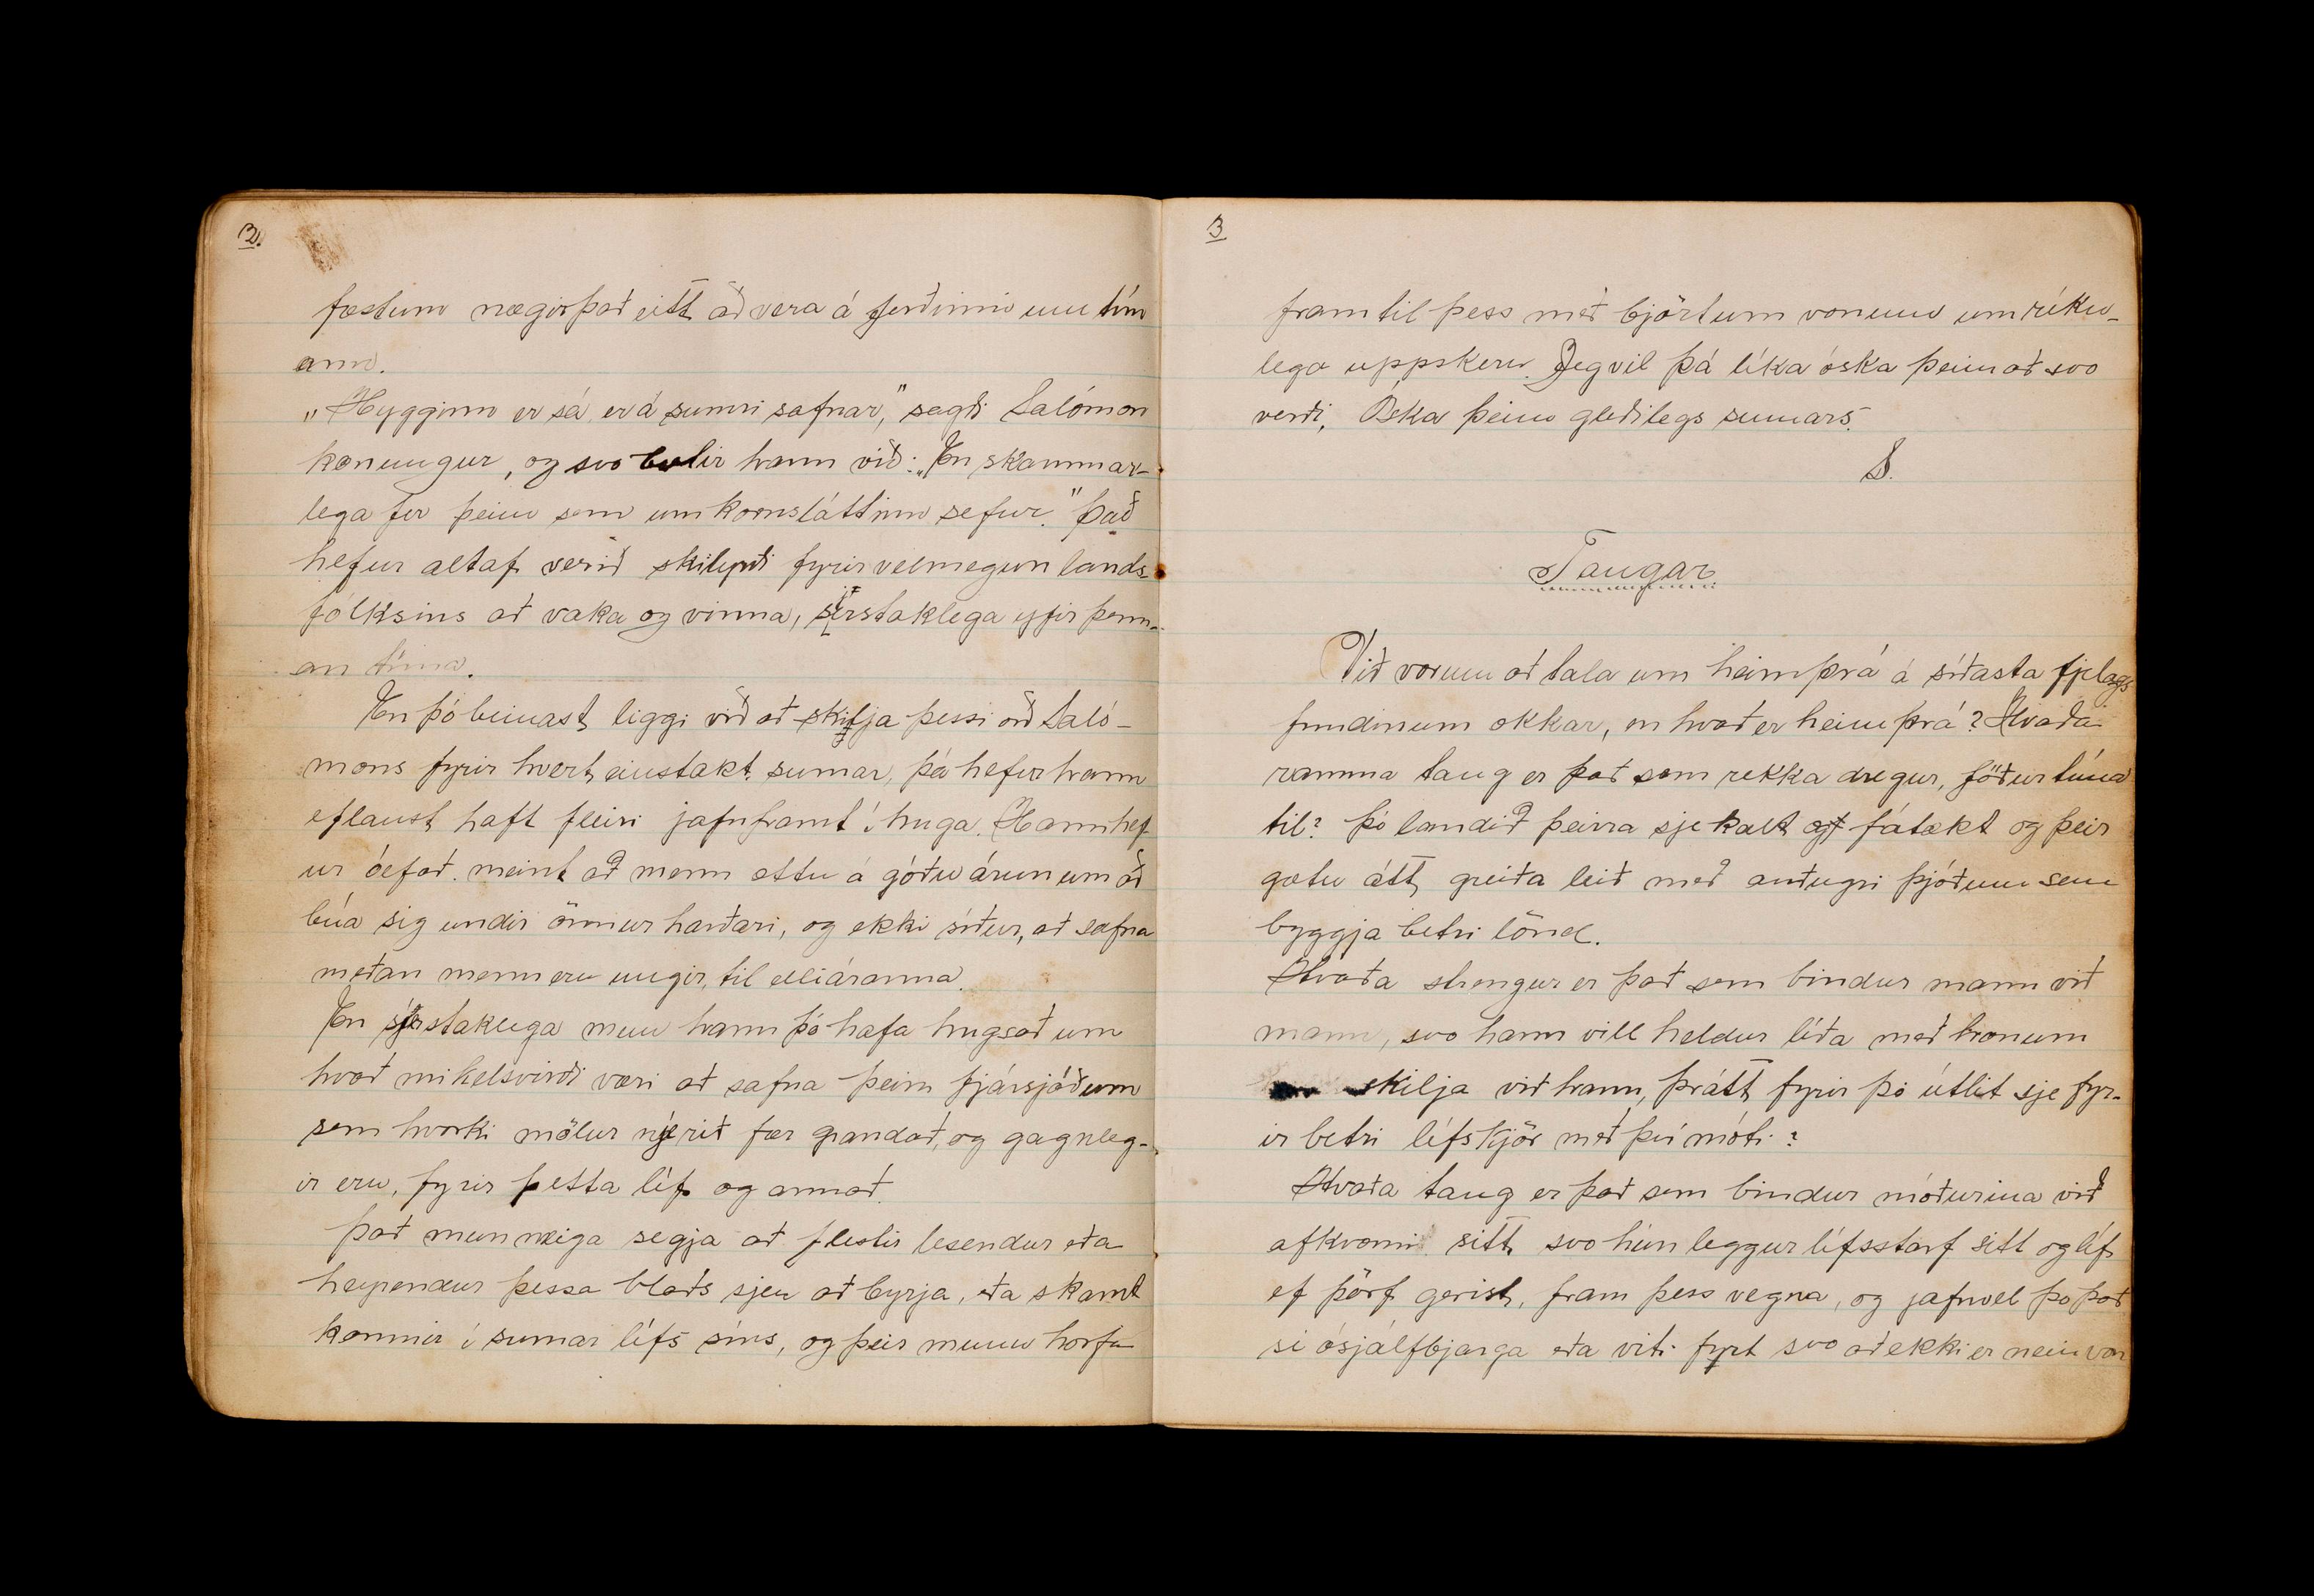 2.
fæstum nægir það eitt að vera á ferðinni um tím
ann.
„Hygginn er sá, er á sumri safnar," sagði Salómon
konungur, og svo bætir hann við: „En skammar-
lega fer þeim sem um kornsláttinn sefur." Það
hefur altaf verið skilyrði fyrir velmegun lands-
fólksins að vaka og vinna, sjerstaklega yfir þenn-
an tíma.
En þó beinast liggi við að skilja þessi orð Saló-
mons fyrir hvert einstakt sumar, þá hefur hann
eflaust haft fleiri jafnframt í huga. Hann hef
ur óefað meint að menn ættu á góðu árunum að
búa sig undir önnur harðari, og ekki síður, að safna
meðan menn eru ungir, til elliáranna.
En sjerstaklega mun hann þó hafa hugsað um
hvað mikelsvirði væri að safna þeim fjársjóðum
sem hvorki mölur nje rið fær grandað, og gagnleg-
ir eru, fyrir þetta líf og annað.
Það mun mega segja að flestir lesendur eða
heyrendur þessa blaðs sjeu að byrja, eða skamt
komnir í sumar lífs síns, og þeir munu horfa
3
fram til þess með björtum vonum um ríku-
lega uppskeru. Jeg vil þá líka óska þeim að svo
verði, Óska þeim gleðilegs sumars.
S.
Taugar
Við vorum að tala um heimþrá á síðasta fjelags
fundinum okkar, en hvað er heimþrá? Hvaða
ramma taug er það sem rekka dregur, föður túna
til? Þó landið þeirra sje kalt og fátækt og þeir
gætu átt greiða leið með auðugri þjóðum sem
byggja betri lönd.
Hvaða strengur er það sem bindur mann við
mann, svo hann vill heldur líða með honum
skilja við hann, þrátt fyrir þó útlit sje fyr-
ir betri lífskjör með því móti?
Hvaða taug er það sem bindur móðurina við
afkvæmi sitt svo hún leggur lífsstarf sitt og líf
ef þörf gerist, fram þess vegna, og jafnvel þó það
sé ósjálfbjarga eða viti fyrt svo að ekki er nein von